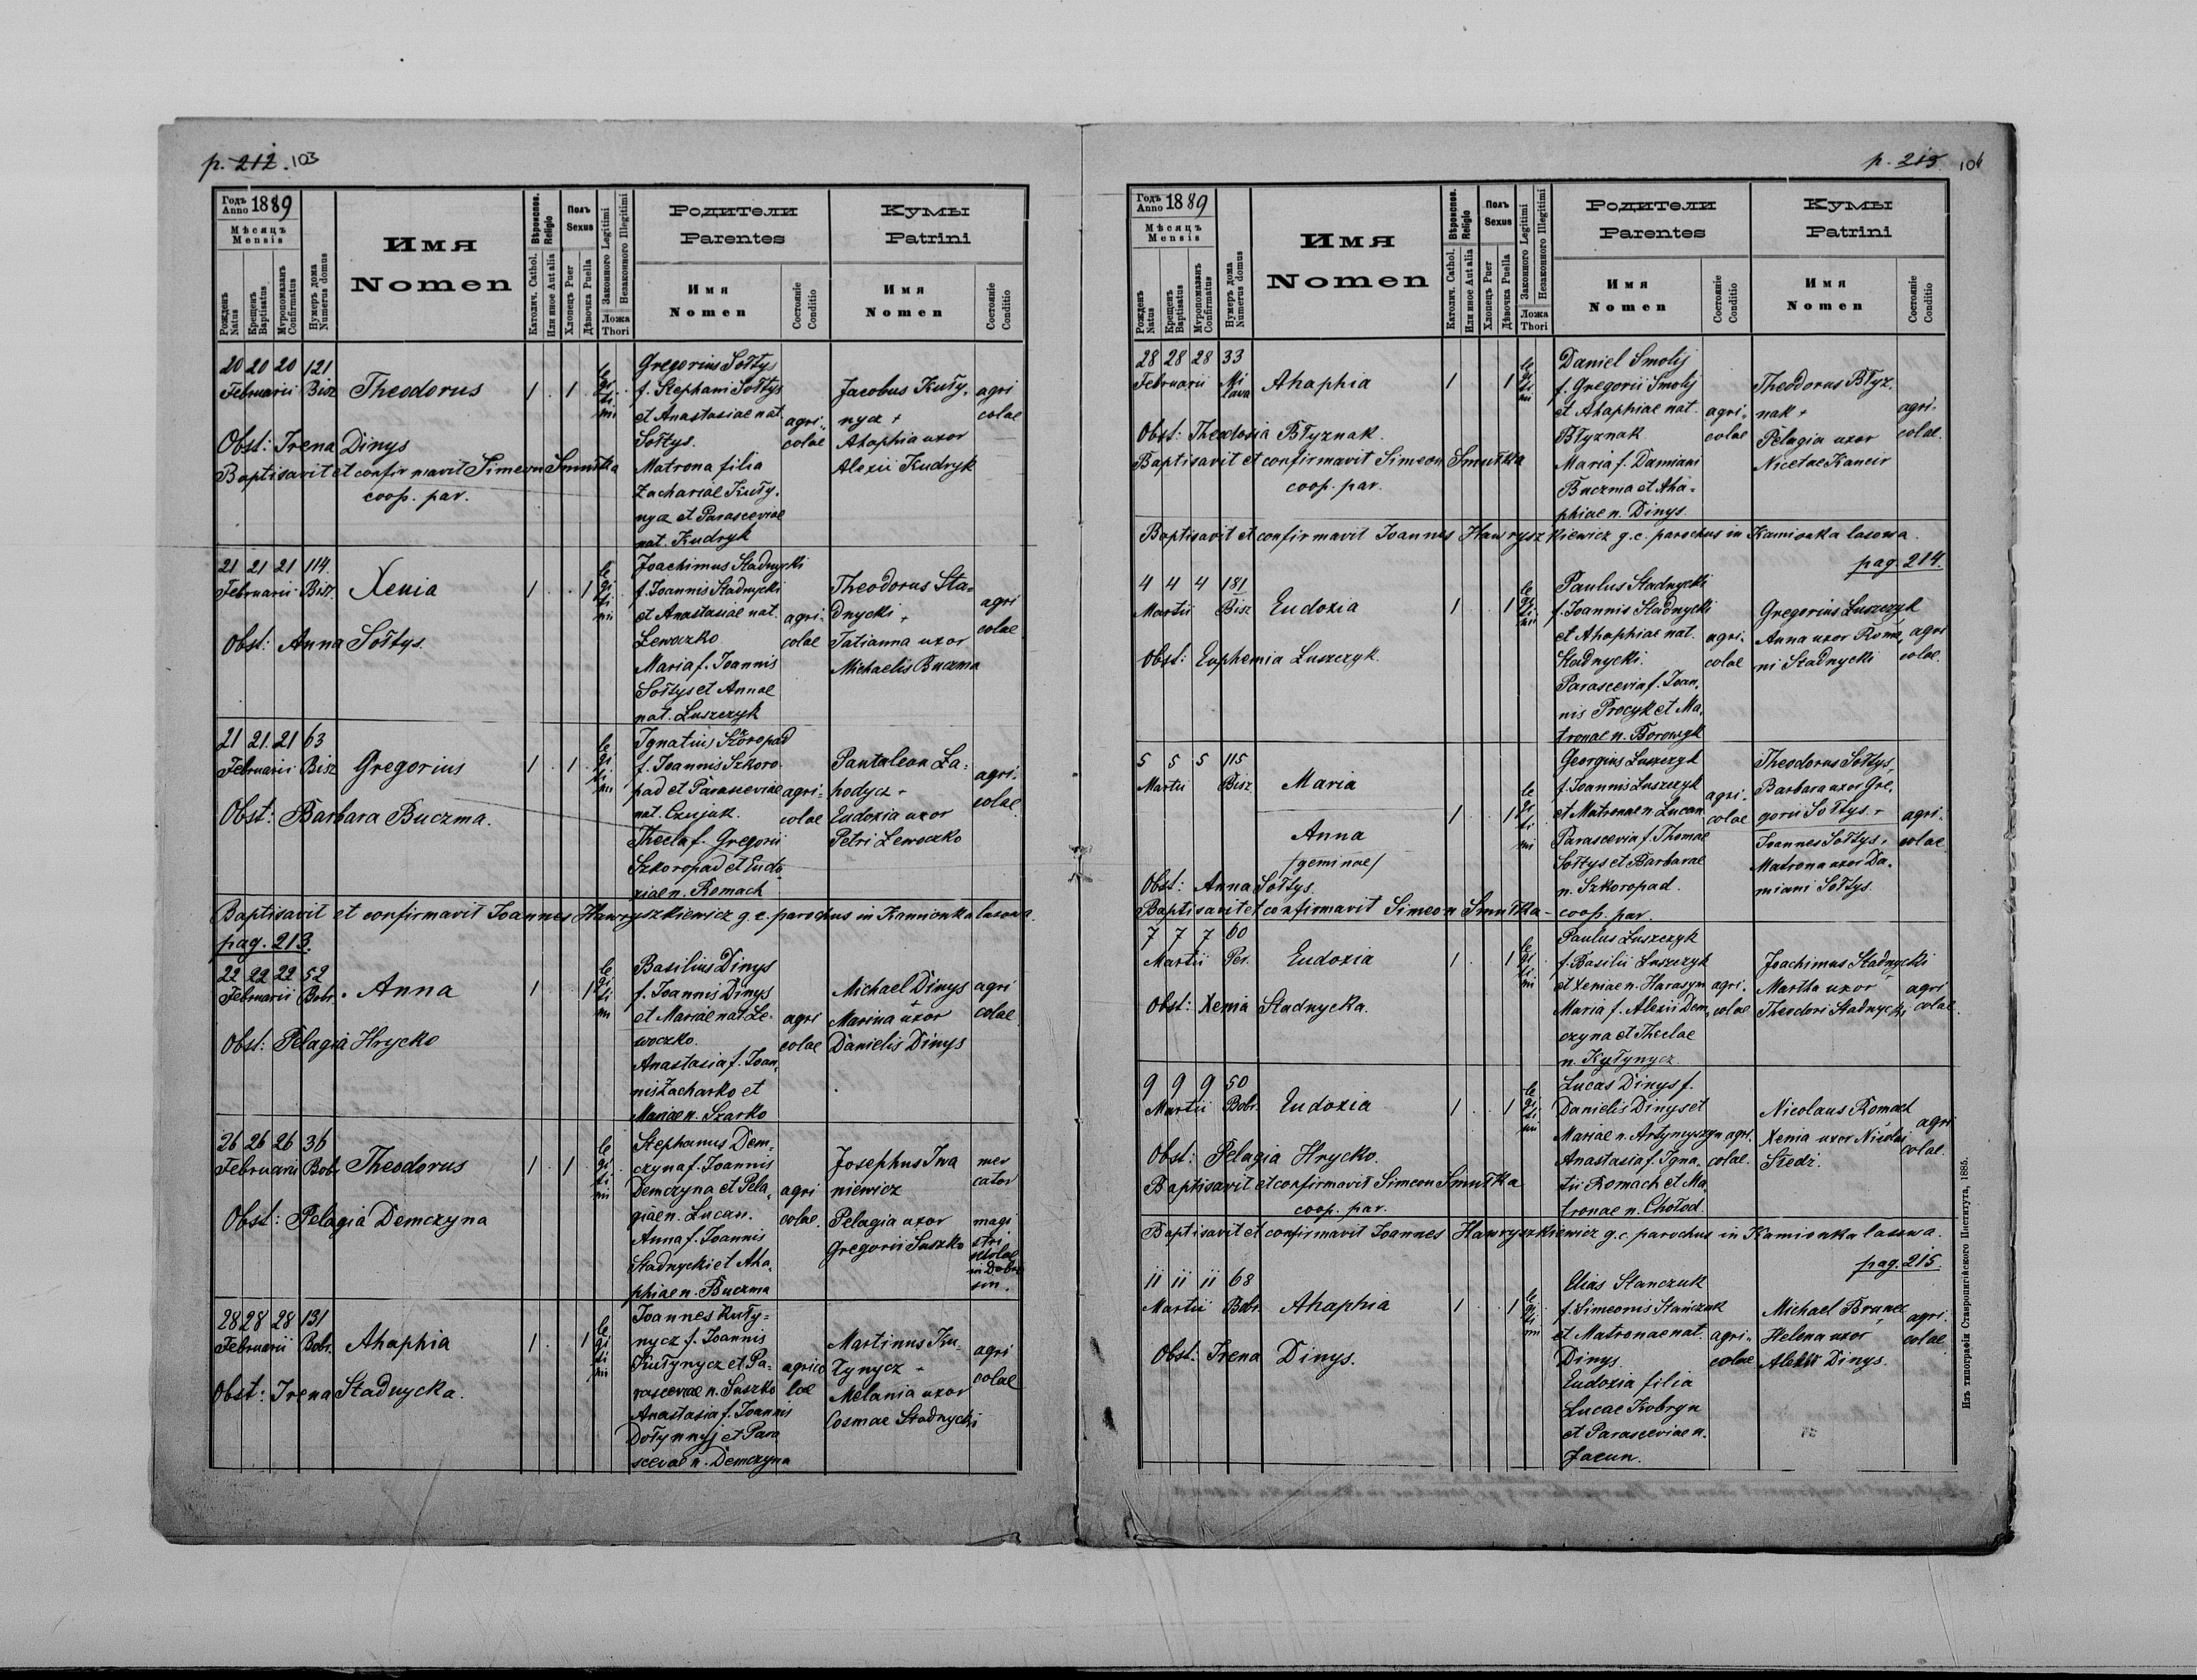 p. 212. 103
Годъ Anno 1889
Мѣсяцъ
Mensis
Рожденъ Natus
Крещенъ Baptisatus
Мѵропомазанъ Confirmatus
Нумеръ дома Numerus domus
Имя
Nomen
Вѣроисповѣд. Religio
Католич. Cathol.
Или иное Aut alia
Полъ
Sexus
Хлопецъ Puer
Дѣвочка Puella
Законного Legitimi
Незаконного Illegitimi
Ложа
Thori
Родители
Parentes
Имя
Nomen
Состояніе
Conditio
Кумы
Patrini
Имя
Nomen
Состояніе
Conditio
20 20 20 121
Februarii Bisz Theodorus 1 . 1 . legitimi
Obst: Irena Dinys
Baptisavit et confirmavit Simeon Smułka
coop. par.
Gregorius Sołtys
f. Stephani Sołtys
et Anastasiae nat.
Sołtys.
Matrona filia
Zachariae Kuły-
nycz et Parasceviae
nat. Kudryk
agri-
colae
Jacobus Kuły-
nycz +
Ahaphia uxor
Alexii Kudryk
agri
colae
21 21 21 114.
Februarii Bisz. Xenia 1 . . 1 legitimi
Obst: Anna Sołtys.
Joachimus Stadnycki
f. Joannis Stadnycki
et Anastasiae nat.
Lewoczko
Maria f. Joannis
Sołtys et Annae
nat. Luszczyk
agri-
colae
Theodorus Sta-
dnycki +
Tatianna uxor
Michaelis Buczma
agri
colae
21 21. 21 63
Februarii Bisz Gregorius 1 . 1 . legitimi
Obst: Barbara Buczma.
Ignatius Szkoropad
f. Joannis Szkoro-
pad et Parasceviae
nat. Czujak.
Thecla f. Gregorii
Szkoropad et Eudo-
xiae n. Romach
agri-
colae
Pantaleon La-
hodycz +
Eudoxia uxor
Petri Lewoczko
agri-
colae
Baptisavit et confirmavit Joannes Hawryszkiewicz g. c. parochus in Kamionka lasowa.
pag. 213.
22 22 22 52
Februarii Bobr. Anna 1 . . 1 legitimi
Obst: Pelagia Hrycko
Basilius Dinys
f. Joannis Dinys
et Mariae nat. Le-
woczko.
Anastasia f. Joan-
nis Zacharko et
Mariae n. Szarko
agri
colae
Michael Dinys
+
Marina uxor
Danielis Dinys
agri
colae
26 26 26 36
Februarii Bobr. Theodorus 1 . 1 . legitimi
Obst: Pelagia Demczyna
Stephanus Dem-
czyna f. Joannis
Demczyna et Pela-
giae n. Lucan.
Anna f. Joannis
Stadnycki et Aha-
phiae n. Buczma
agri
colae.
Josephus Iwa
niewicz
Pelagia uxor
Gregorii Suszko
mer
cator
magi
stri
scholae
in Dobro
sin.
28 28 28 131
Februarii Bobr. Ahaphia 1 . . 1 legitimi
Obst: Irena Stadnycka.
Joannes Kuły-
nycz f. Joannis
Kułynycz et Pa-
rasceviae n. Suszko
Anastasia f. Joannis
Dołynnyj et Para
scevae n. Demczyna
agrico
lae
Martinus Ku-
łynycz +
Melania uxor
Cosmae Stadnycki
agri
colae
p. 213 104
Годъ Anno 1889
Мѣсяцъ
Mensis
Рожденъ Natus
Крещенъ Baptisatus
Мѵропомазанъ Confirmatus
Нумеръ дома Numerus domus
Имя
Nomen
Вѣроисповѣд. Religio
Католич. Cathol.
Или иное Aut alia
Полъ
Sexus
Хлопецъ Puer
Дѣвочка Puella
Законного Legitimi
Незаконного Illegitimi
Ложа
Thori
Родители
Parentes
Имя
Nomen
Состояніе
Conditio
Кумы
Patrini
Имя
Nomen
Состояніе
Conditio
28 28 28 33
Februarii Mi
lawa Ahaphia 1 . . 1 legitimi
Obst: Theodosia Błyznak.
Baptisavit et confirmavit Simeon Smułka
coop. par.
Daniel Smolij
f. Gregorii Smolij
et Ahaphiae nat.
Błyznak
Maria f. Damiani
Buczma et Aha-
phiae n. Dinys.
agri-
colae
Theodorus Błyz-
nak +
Pelagia uxor
Nicetae Kancir
agri-
colae.
Baptisavit et confirmavit Joannes Hawryszkiewicz g. c. parochus in Kamionka lasowa.
pag. 214.
4 4 4 181
Martii Bisz Eudoxia 1 . . 1 legitimi
Obst: Euphemia Luszczyk.
Paulus Stadnycki
f. Joannis Stadnycki
et Ahaphiae nat.
Stadnycki.
Parascevia f. Joan-
nis Procyk et Ma-
tronae n. Borowyk
agri-
colae
Gregorius Luszczyk
Anna uxor Roma-
ni Stadnycki
agri
colae.
5 5 5 115
Martii Bisz Maria
1 . . 1 legitimi
Anna
/geminae/
Obst: Anna Sołtys.
Baptisavit et confirmavit Simeon Smułka - coop. par.
Georgius Luszczyk
f. Joannis Luszczyk
et Matronae n. Lucan
Parascevia f. Thomae
Sołtys et Barbarae
n. Szkoropad.
agri-
colae
Theodorus Sołtys,
Barbara uxor Gre-
gorii Sołtys. +
Joannes Sołtys,
Matrona uxor Da-
miani Sołtys.
agri-
colae
7 7 7 60
Martii Per. Eudoxia 1 . . 1 legitimi
Obst: Xenia Stadnycka.
Paulus Luszczyk
f. Basilii Luszczyk
et Xeniae n. Harasym
Maria f. Alexii Dem-
czyna et Theclae
n. Kułynycz.
agri-
colae
Joachimus Stadnycki
Martha uxor
Theodori Stadnycki
agri
colae.
9 9 9 50
Martii Bobr. Eudoxia 1 . . 1 legitimi
Obst: Pelagia Hrycko.
Baptisavit et confirmavit Simeon Smułka
coop. par.
Lucas Dinys f.
Danielis Dinys et
Mariae n. Artymyszyn
Anastasia f. Igna-
tii Romach et Ma-
tronae n. Chołod.
agri.
colae.
Nicolaus Romach
Xenia uxor Nicolai
Sledź.
agri
colae.
Baptisavit et confirmavit Joannes Hawryszkiewicz g. c. parochus in Kamionka lasowa.
pag. 215.
11 11 11 68
Martii Bobr. Ahaphia 1 . . 1 legitimi
Obst. Irena Dinys.
Elias Stanczuk
f. Simeonis Stańczuk
et Matronae nat.
Dinys.
Eudoxia filia
Lucae Kobryn
et Parasceviae n.
Jacun.
agri-
colae
Michael Brunec,
Helena uxor
Dinys.
agri.
colae
Изъ типографіи Ставропигійского Института, 1885.